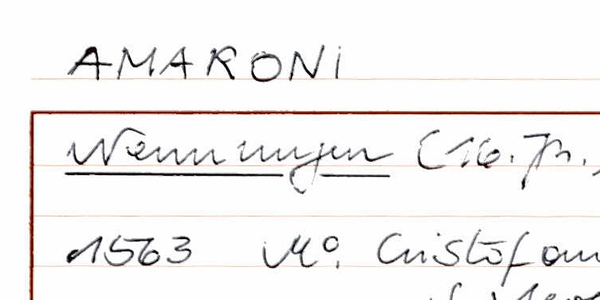 AMARONI
Nennungen (16. Jh.,
1563 Mº. Cristofan